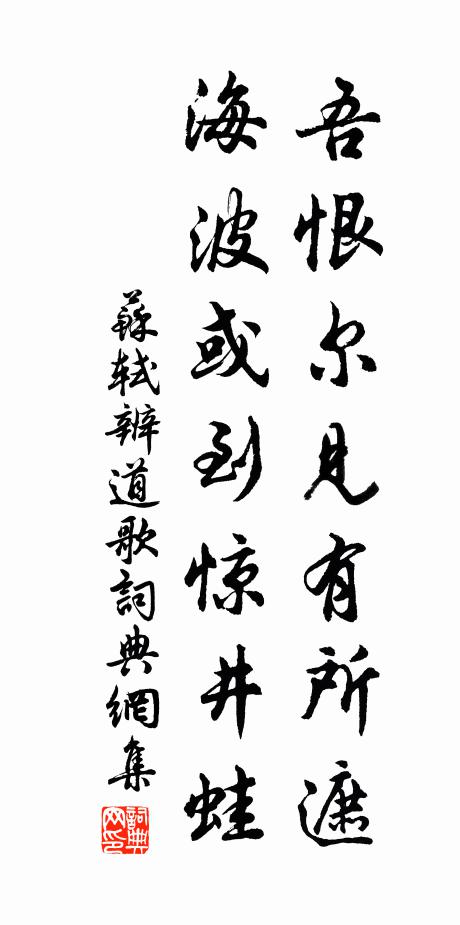 吾恨尔见有所遮
海波或到惊井蛙
蘇轼辨道歌詞典網集
詞典网印